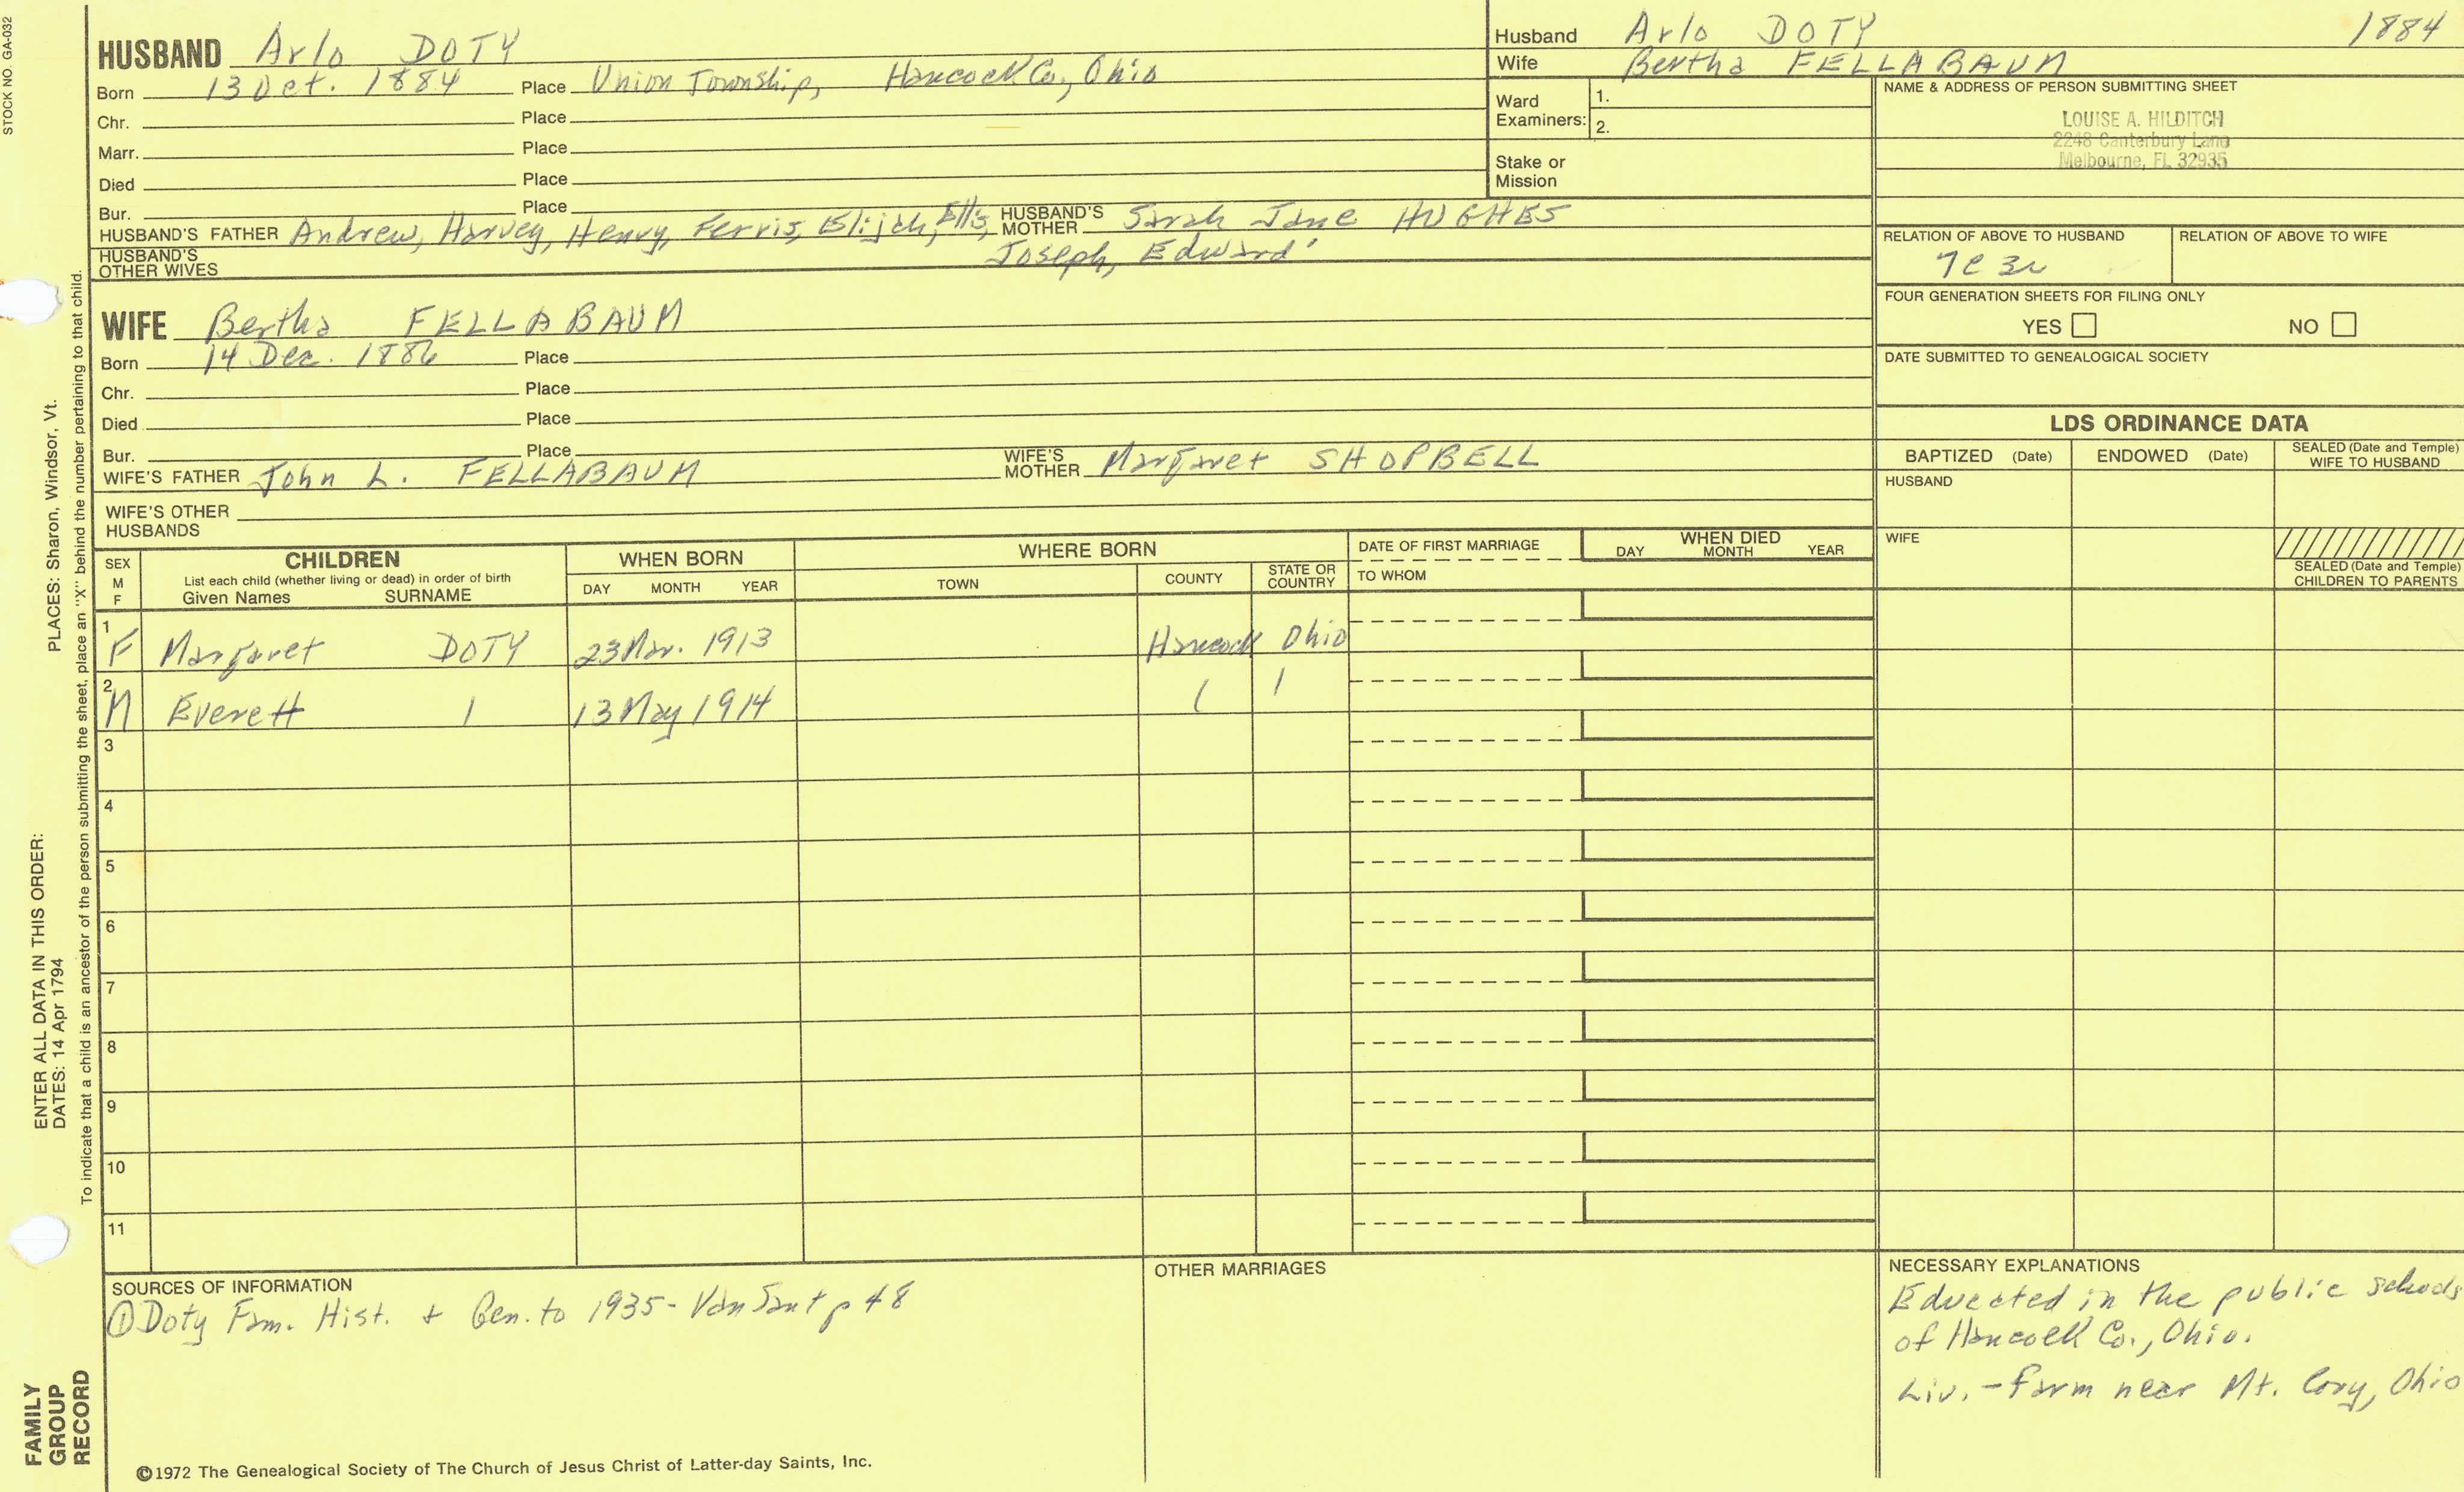 STOCK NO. GA-032
HUSBAND Arlo DOTY
Born 13 Oct. 1884 Place Union Township, Hancock Co., Ohio
Chr. Place
Marr. Place
Died Place
Bur. Place
HUSBAND'S FATHER Andrew, Harvey, Henry, Ferris, Elijah, Ellis, HUSBAND'S MOTHER Sarah Jane HUGHES
Joseph, Edward
HUSBAND'S OTHER WIVES
Husband Arlo DOTY 1884
Wife Bertha FELLABAUM
Ward Examiners: 1.
2.
Stake or Mission
NAME & ADDRESS OF PERSON SUBMITTING SHEET
LOUISE A. HILDITCH
2248 Canterbury Lane
Melbourne, FL 32935
RELATION OF ABOVE TO HUSBAND RELATION OF ABOVE TO WIFE
7C 3r
FOUR GENERATION SHEETS FOR FILING ONLY
YES NO
DATE SUBMITTED TO GENEALOGICAL SOCIETY
WIFE Bertha FELLABAUM
Born 14 Dec. 1886 Place
Chr. Place
Died Place
Bur. Place
WIFE'S FATHER John L. FELLABAUM WIFE'S MOTHER Margaret SHOPBELL
WIFE'S OTHER HUSBANDS
LDS ORDINANCE DATA
BAPTIZED (Date) ENDOWED (Date) SEALED (Date and Temple) WIFE TO HUSBAND
HUSBAND
WIFE
SEALED (Date and Temple) CHILDREN TO PARENTS
SEX M F
CHILDREN
List each child (whether living or dead) in order of birth
Given Names SURNAME
WHEN BORN
DAY MONTH YEAR
WHERE BORN
TOWN COUNTY STATE OR COUNTRY
DATE OF FIRST MARRIAGE
TO WHOM
WHEN DIED
DAY MONTH YEAR
1 F Margaret DOTY 23 Mar. 1913 Hancock Ohio
2 M Everett 13 May 1914
3
4
5
6
7
8
9
10
11
SOURCES OF INFORMATION
① Doty Fam. Hist. + Gen. to 1935- Van Sant p 48
OTHER MARRIAGES
NECESSARY EXPLANATIONS
Educated in the public schools
of Hancock Co., Ohio.
Liv. - Farm near Mt. Cory, Ohio
©1972 The Genealogical Society of The Church of Jesus Christ of Latter-day Saints, Inc.
FAMILY GROUP RECORD
ENTER ALL DATA IN THIS ORDER:
DATES: 14 Apr 1794
PLACES: Sharon, Windsor, Vt.
To indicate that a child is an ancestor of the person submitting the sheet, place an "X" behind the number pertaining to that child.